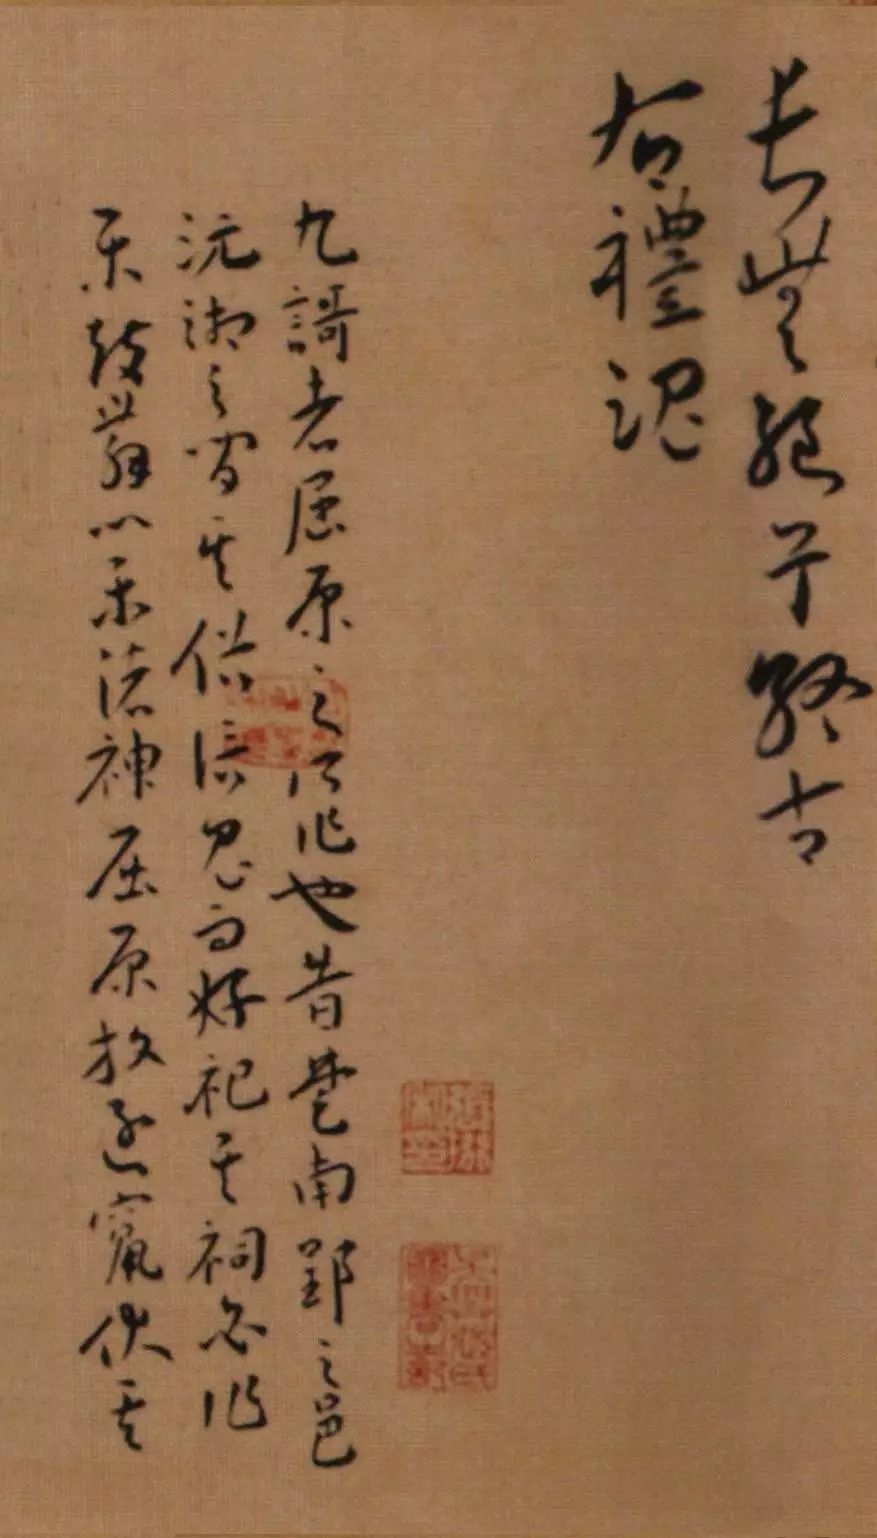 長無絕兮終古
右禮魂
九謌者屈原之所作也昔楚南郢之邑
沅湘之間其俗信鬼而好祀其祠必作
樂鼓舞以樂諸神屈原放逐竄伏其